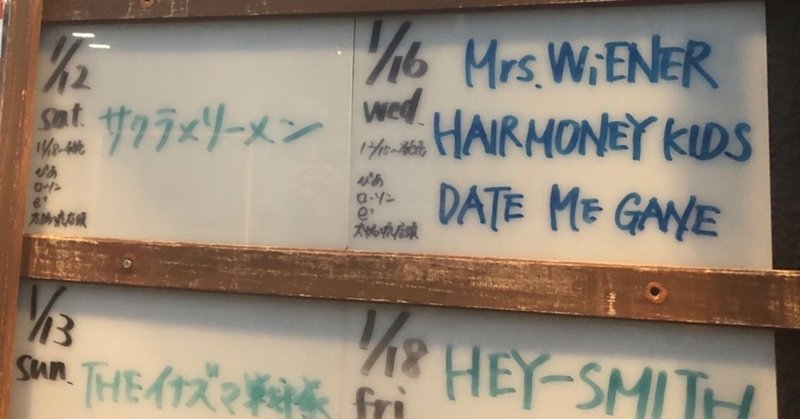 1/12
sat.
サクラメリーメン
11/18〜発売
ぴあ
ローソン
e+
1/16
wed.
Mrs. WiENER
HAIRMONEY KIDS
DATE ME GANE
12/15〜発売
ぴあ
ローソン
e+
1/13
sun.
THEイナズマ戦隊
1/18
fri
HEY-SMITH